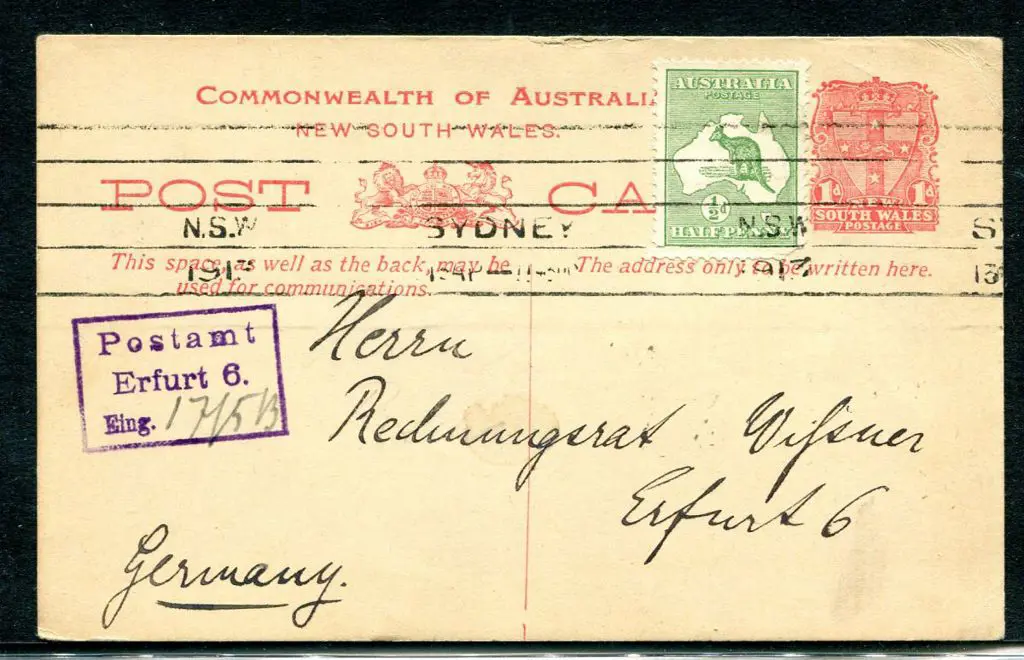 COMMONWEALTH OF AUSTRALIA
NEW SOUTH WALES.
POST CA
AUSTRALIA
POSTAGE
½d
HALF PENNY
1d 1d
NEW
SOUTH WALES
POSTAGE
N.S.W SYDNEY N.S.W S
1913 1913 13
This space, as well as the back, may be
used for communications.
The address only to be written here.
Postamt
Erfurt 6.
Eing. 17/5 13
Herrn
Rechnungsrat Wißner
Erfurt 6
Germany.